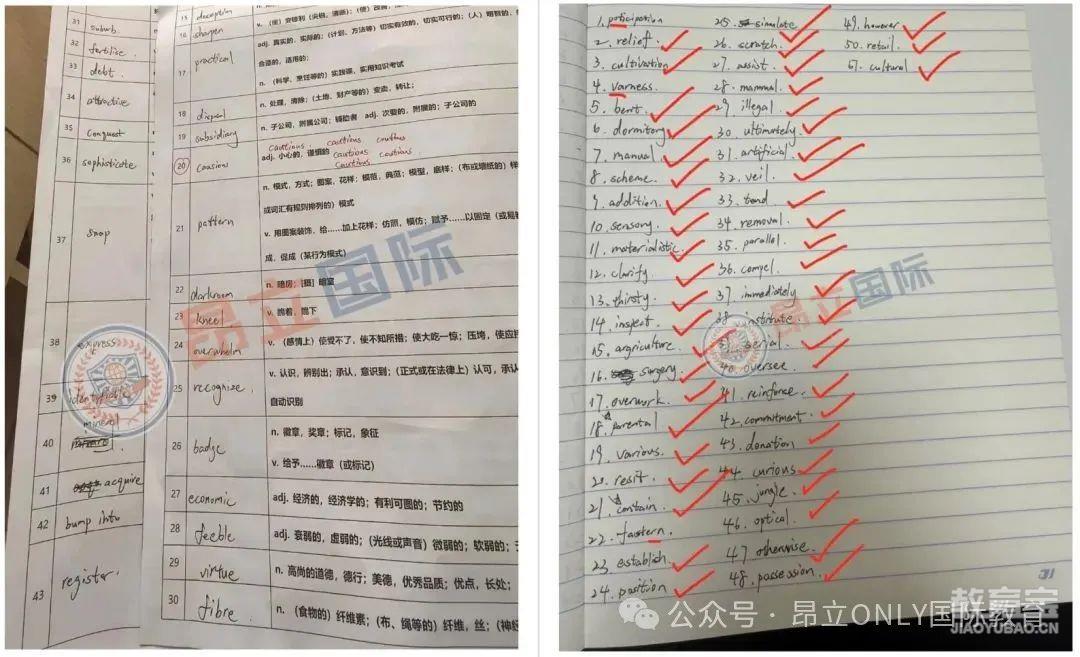 31 suburb.
32 fertilise.
33 debt.
34 attractive
35 Conquest
36 sophisticate
37 snap
38 express
39 identifiable
mineral
40
41 acquire
42 bump into
43 register.
15 deception
16 sharpen
17 practical
adj. 真实的、实际的;(计划、方法等)切实有效的,切实可行的;(人)
合适的,适用的;
n. (科学、烹饪等的)实践课,实用知识考试
18 disposal
n. 处理,清除;(土地、财产等的)变卖,转让;
19 subsidiary
n. 子公司,附属公司;辅助者 adj. 次要的,附属的;子公司的
cautious cautious cautious
20 causious
adj. 小心的,谨慎的
cautious cautious
cautious
21 pattern
n. 模式,方式;图案,花样;模范,典范;模型,底样;(布或墙纸的)样
或词汇有规则排列的)模式
v. 用图案装饰,给……加上花样;仿照,模仿;赋予……以固定(或易
成,促成(某行为模式)
22 darkroom
n. 暗房;[摄] 暗室
23 kneel
v. 跪着,跪下
24 overwhelm
v. (感情上)使受不了,使不知所措;使大吃一惊;压垮,使应接
25 recognize.
v. 认识,辨别出;承认,意识到;(正式或在法律上)认可,承认
自动识别
26 badge
n. 徽章,奖章;标记,象征
v. 给予……徽章(或标记)
27 economic
adj. 经济的,经济学的;有利可图的;节约的
28 feeble
adj. 衰弱的,虚弱的;(光线或声音)微弱的;软弱的;
29 virtue
n. 高尚的道德,德行;美德,优秀品质;优点,长处;
30 fibre
n. (食物的)纤维素;(布、绳等的)纤维,丝;(神经
昂立国际
1. paticipation
2. relief.
3. cultivation
4. varness.
5.
6. dormitory
7. manual
8. scheme.
9. addition.
10. sensory.
11. materialistic
12. clarify
13. thirsty.
14. inspect
15. argriculture.
16. surgery
17. overwork.
18. parental
19. Various
20. resit
21. contain
22. fastern.
23. establish.
24. position
25. simulate
26. scratch.
27. assist.
28. mammal.
29. illegal
30. ultimately.
31. artificial
32. veil.
33. tend
34. removal.
35. parallel.
36. compel.
37. immediately
38. institute.
39. serial.
40. oversee
41. reinforce
42. commitment
43. donation
44. curious
45. jungle
46. optical
47. otherwise
48. possession
49. however
50. retail.
51. cultural
昂立国际
31
公众号 · 昂立ONLY国际教育
教育宝
JIAOYUBAO.CN